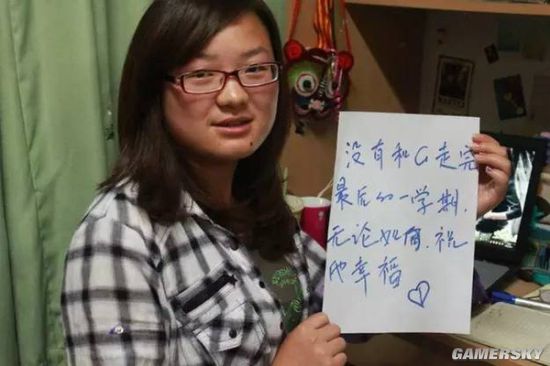 没有和G走完
最后的一学期.
无论如何.祝
他幸福
GAMERSKY